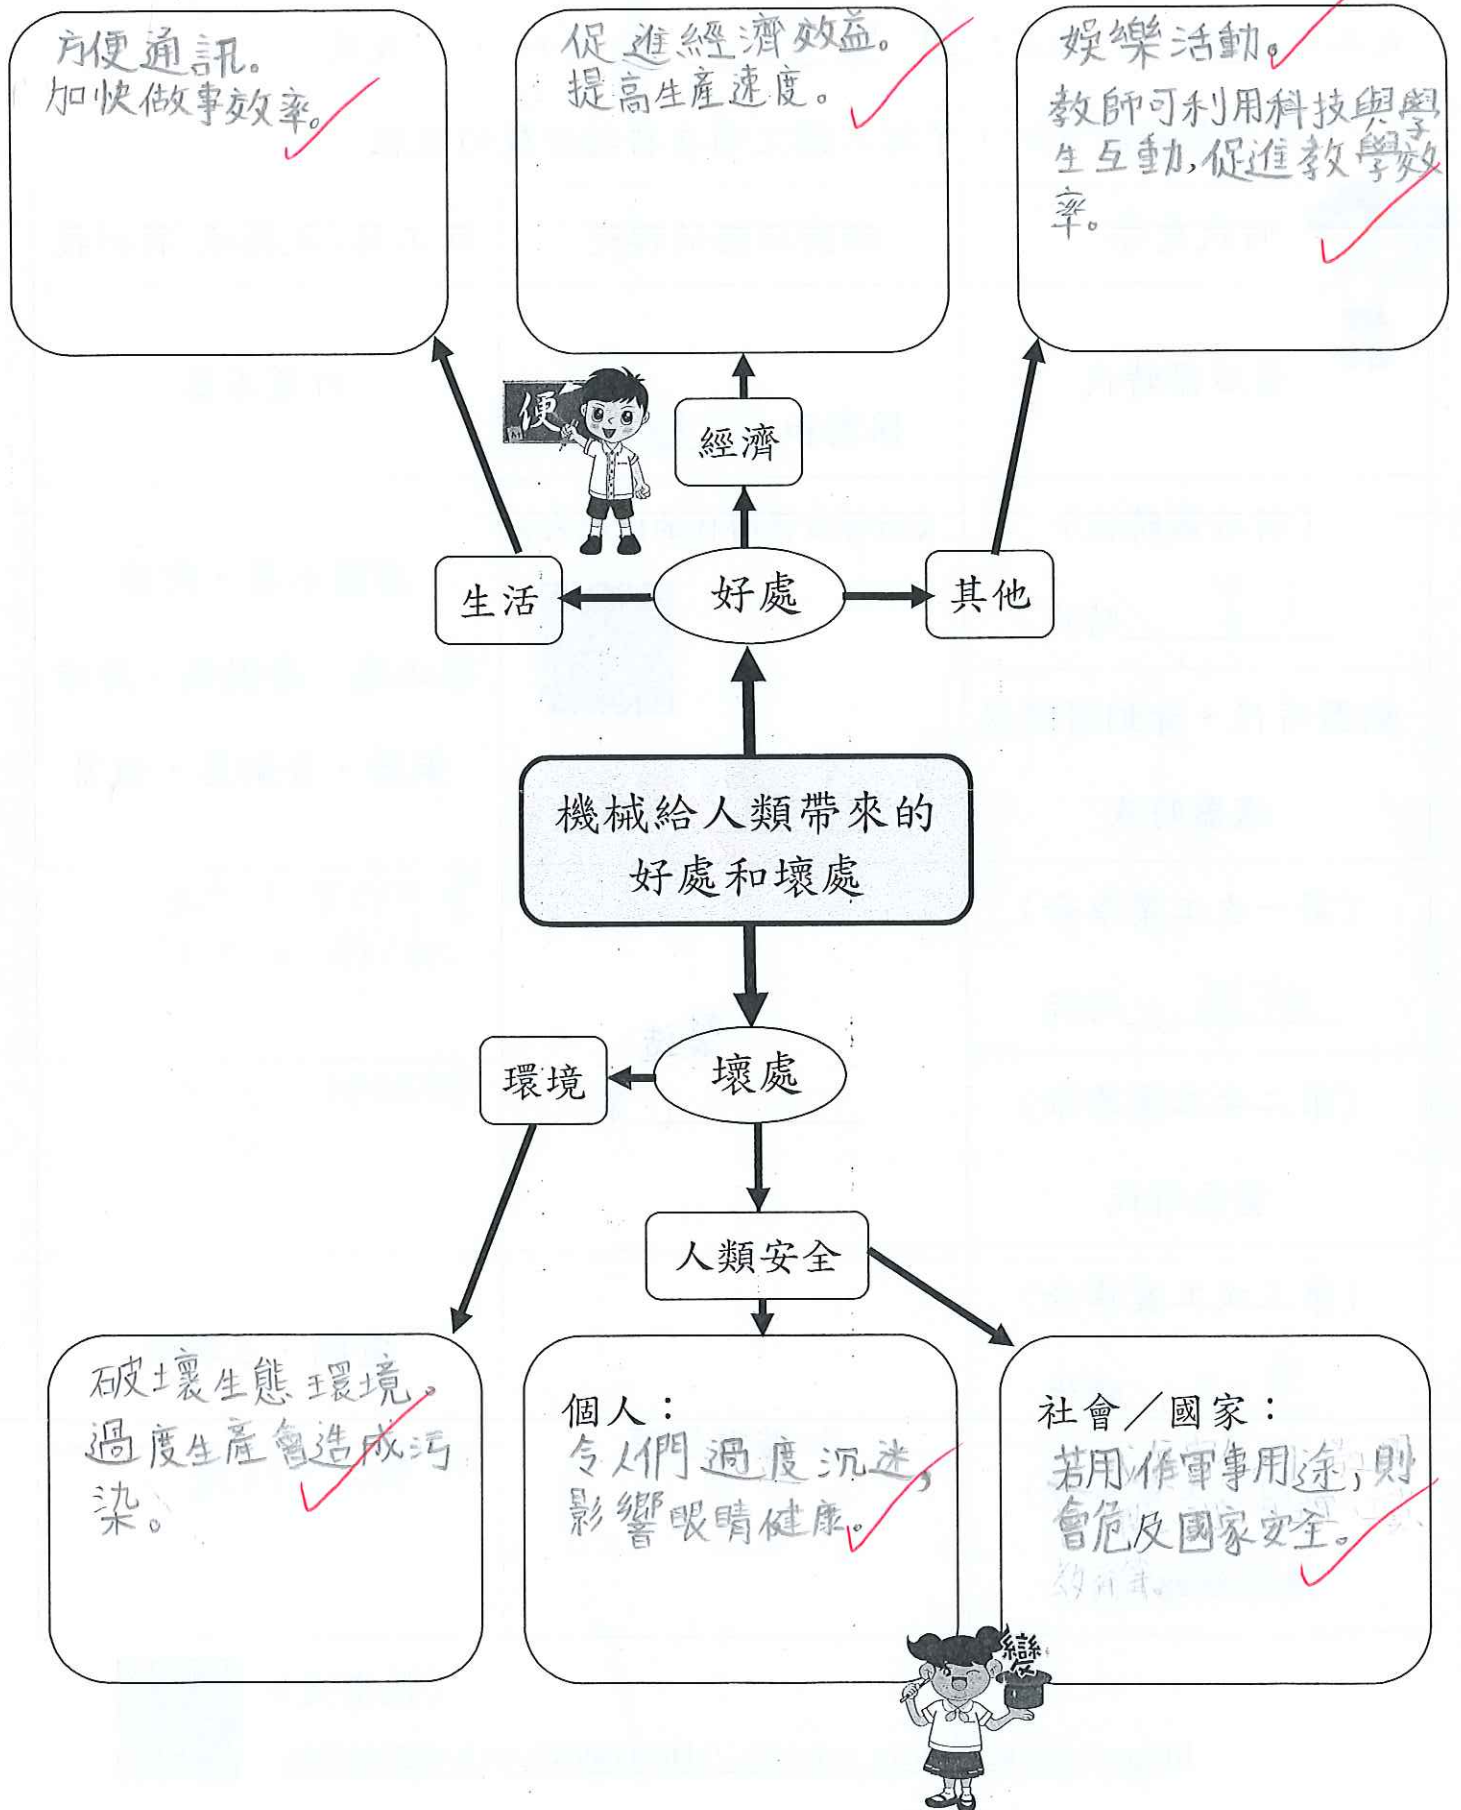 方便通訊。
加快做事效率。
促進經濟效益。
提高生產速度。
娛樂活動。
教師可利用科技與學
生互動,促進教學效
率。
便
經濟
生活
好處
其他
機械給人類帶來的
好處和壞處
環境
壞處
人類安全
破壞生態環境。
過度生產會造成污
染。
個人：
令人們過度沉迷,
影響眼睛健康。
社會／國家：
若用作軍事用途,則
會危及國家安全。
變